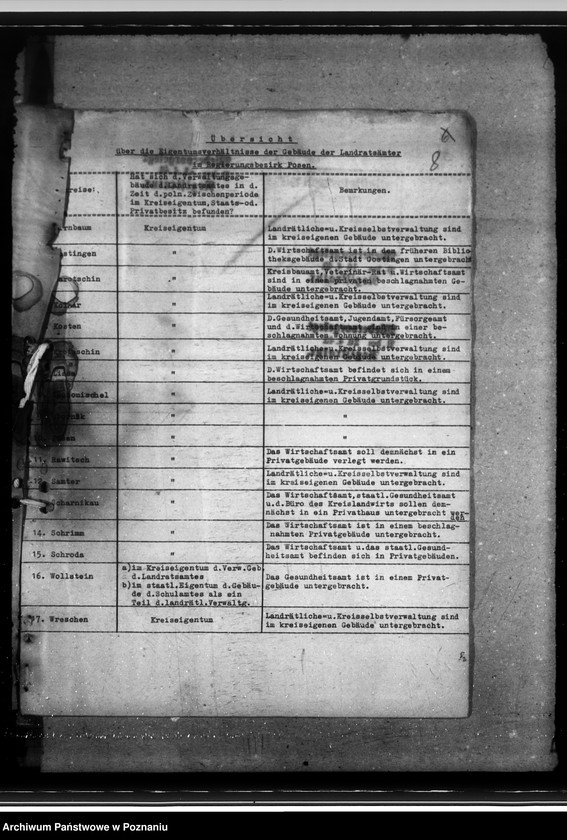 8
Übersicht
über die Eigentumsverhältnisse der Gebäude der Landratsämter
im Regierungsbezirk Posen.
Hat sich d.Verwaltungsge-
bäude d.Landratsamtes in d.
Zeit d.poln.Zwischenperiode
im Kreiseigentum,Staats-od.
Privatbesitz befunden?
Bemerkungen.
Kreiseigentum
Landrätliche-u.Kreisselbstverwaltung sind
im kreiseigenen Gebäude untergebracht.
"
D.Wirtschaftsamt ist in dem früheren Biblio
theksgebäude d.Stadt Gostingen untergebracht
"
Kreisbauamt,Veterinär-Rat u.Wirtschaftsamt
sind in einem privaten beschlagnahmten Ge-
bäude untergebracht.
"
Landrätliche-u.Kreisselbstverwaltung sind
im kreiseigenen Gebäude untergebracht.
Kosten
"
D.Gesundheitsamt,Jugendamt,Fürsorgeamt
und d.Wirtschaftsamt sind in einer be-
schlagnahmten Wohnung untergebracht.
"
Landrätliche-u.Kreisselbstverwaltung sind
im kreiseigenen Gebäude untergebracht.
"
D.Wirtschaftsamt befindet sich in einem
beschlagnahmten Privatgrundstück.
"
Landrätliche-u.Kreisselbstverwaltung sind
im kreiseigenen Gebäude untergebracht.
" "
" "
11. Rawitsch
"
Das Wirtschaftsamt soll demnächst in ein
Privatgebäude verlegt werden.
Samter
"
Landrätliche-u.Kreisselbstverwaltung sind
im kreiseigenen Gebäude untergebracht.
Scharnikau
"
Das Wirtschaftsamt,staatl.Gesundheitsamt
u.d.Büro des Kreislandwirts sollen dem-
nächst in ein Privathaus untergebracht wer-
den
14. Schrimm
"
Das Wirtschaftsamt ist in einem beschlag-
nahmten Privatgebäude untergebracht.
15. Schroda
"
Das Wirtschaftsamt u.das staatl.Gesund-
heitsamt befinden sich in Privatgebäuden.
16. Wollstein
a)im Kreiseigentum d.Verw.Geb.
d.Landratsamtes
b)im staatl.Eigentum d.Gebäu-
de d.Schulamtes als ein
Teil d.landrätl.Verwaltg.
Das Gesundheitsamt ist in einem Privat-
gebäude untergebracht.
17. Wreschen
Kreiseigentum
Landrätliche-u.Kreisselbstverwaltung sind
im kreiseigenen Gebäude untergebracht.
Archiwum Państwowe w Poznaniu